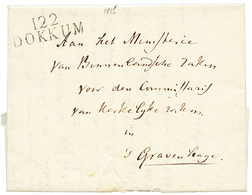 122
DOKKUM
Aan het Ministerie
van Binnenlandsche Zaken
voor den Commissaris
van Kerkelyke Zaken
in
's Gravenhage.